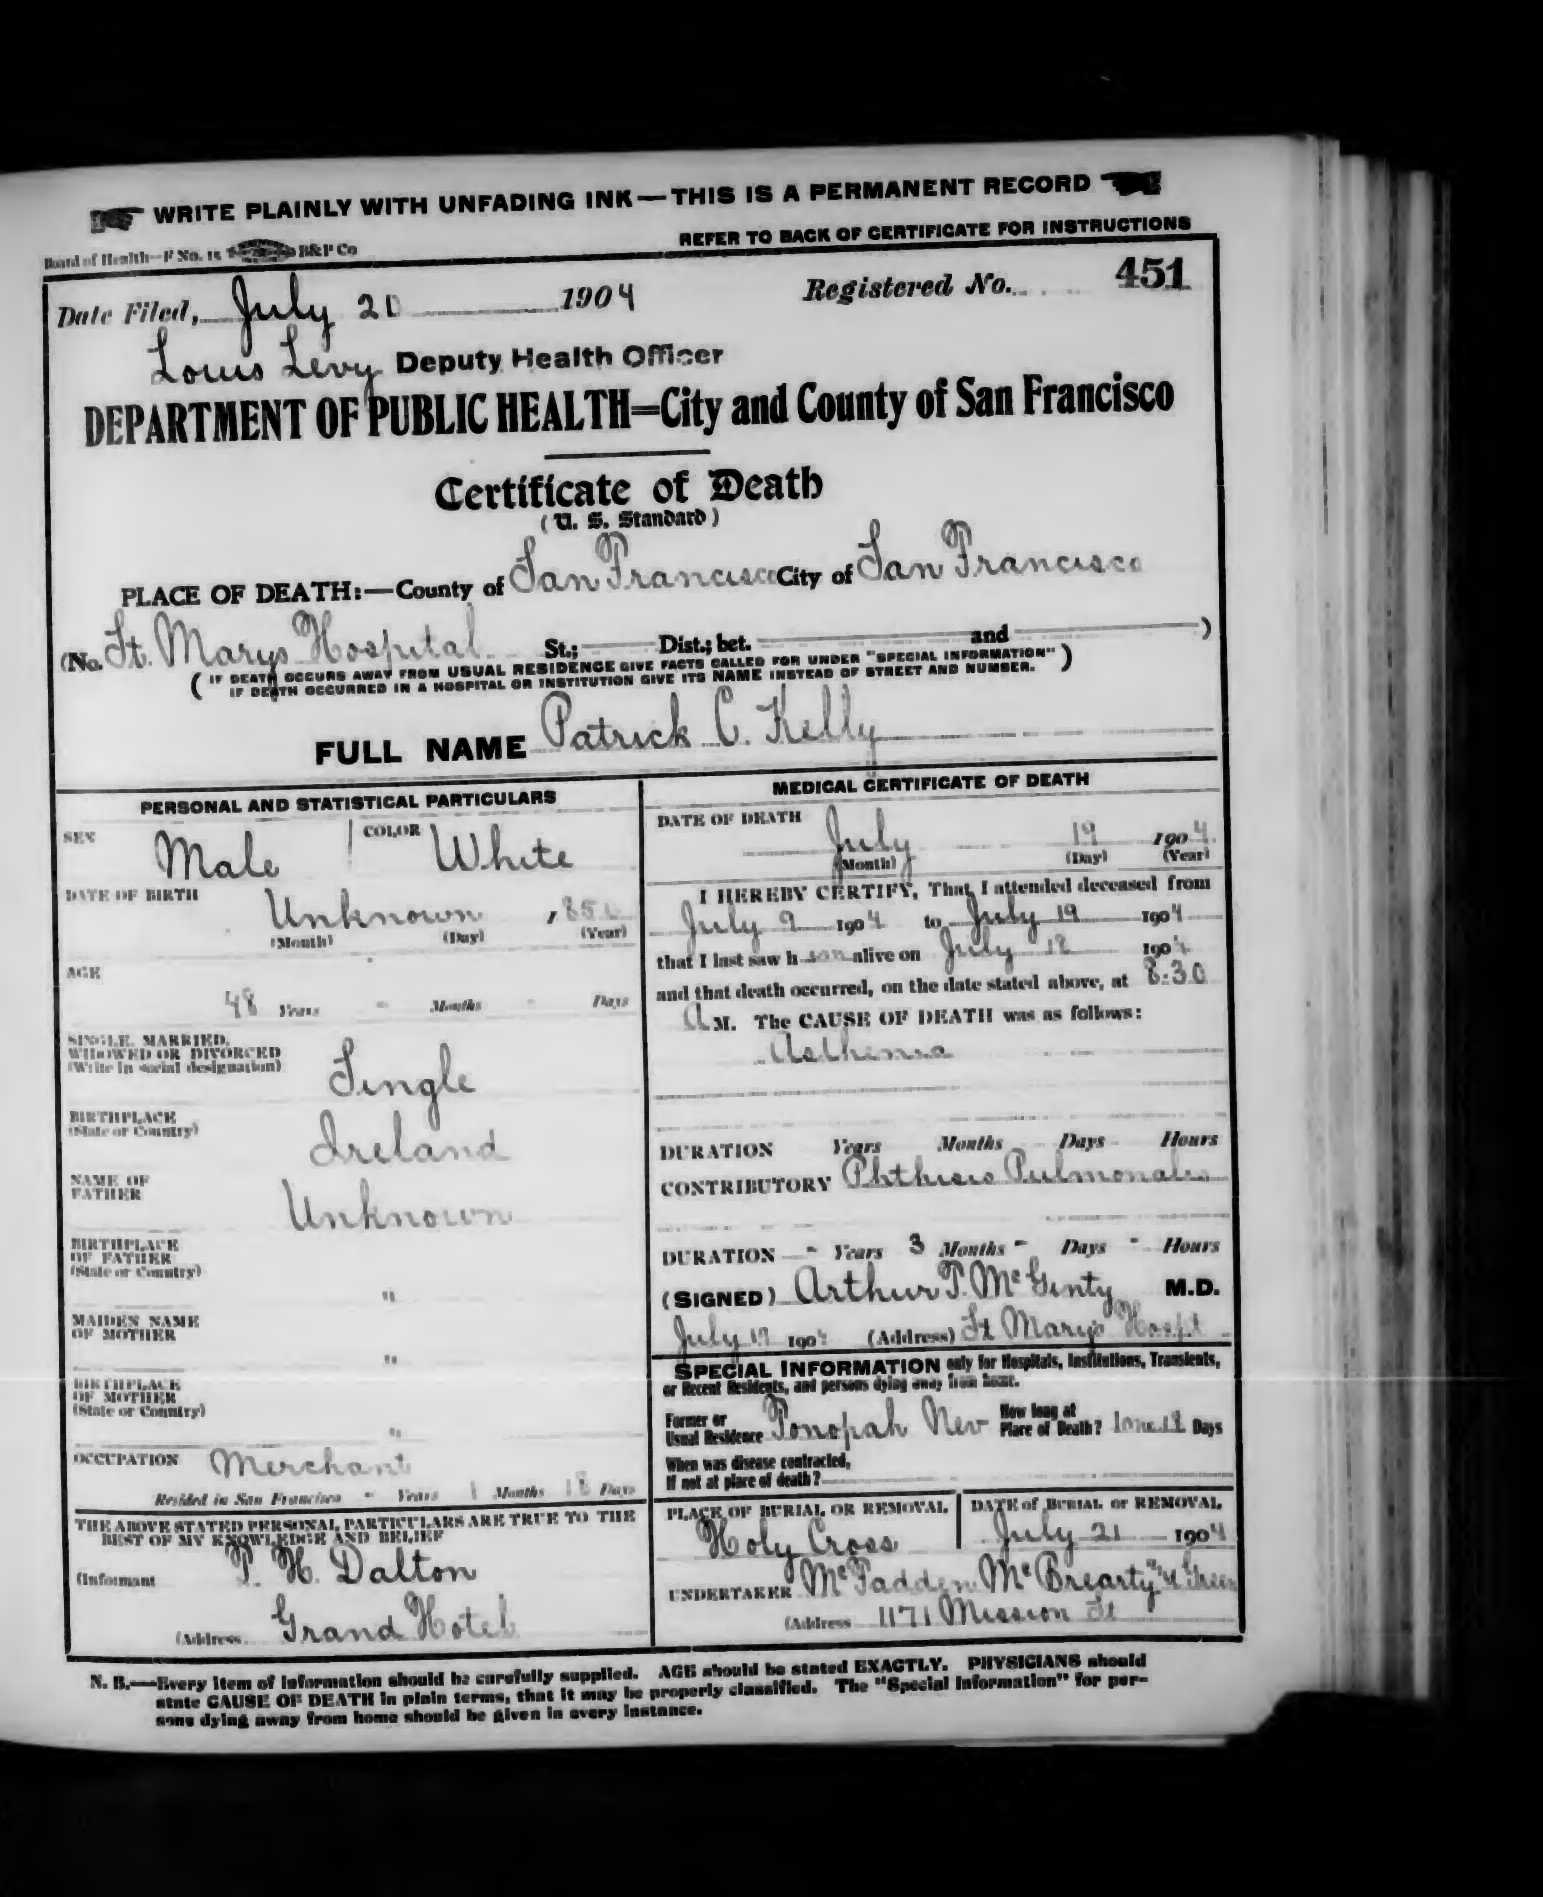 WRITE PLAINLY WITH UNFADING INK—THIS IS A PERMANENT RECORD
Board of Health—F No. 15 B&P Co
REFER TO BACK OF CERTIFICATE FOR INSTRUCTIONS
Date Filed, July 20 1904 Registered No. 451
Louis Levy Deputy Health Officer
DEPARTMENT OF PUBLIC HEALTH=City and County of San Francisco
Certificate of Death
(U. S. Standard)
PLACE OF DEATH:—County of San Francisco City of San Francisco
(No. St. Marys Hospital St.; Dist.; bet. and )
( IF DEATH OCCURS AWAY FROM USUAL RESIDENCE GIVE FACTS CALLED FOR UNDER "SPECIAL INFORMATION" )
IF DEATH OCCURRED IN A HOSPITAL OR INSTITUTION GIVE ITS NAME INSTEAD OF STREET AND NUMBER.
FULL NAME Patrick C. Kelly
PERSONAL AND STATISTICAL PARTICULARS
SEX Male COLOR White
DATE OF BIRTH Unknown
(Month) (Day) (Year)
AGE
48 Years - Months - Days
SINGLE, MARRIED,
WIDOWED OR DIVORCED
(Write in social designation) Single
BIRTHPLACE
(State or Country) Ireland
NAME OF
FATHER Unknown
BIRTHPLACE
OF FATHER
(State or Country) "
MAIDEN NAME
OF MOTHER "
BIRTHPLACE
OF MOTHER
(State or Country) "
OCCUPATION Merchant
Resided in San Francisco - Years 1 Months 18 Days
THE ABOVE STATED PERSONAL PARTICULARS ARE TRUE TO THE
BEST OF MY KNOWLEDGE AND BELIEF
(Informant P. H. Dalton
(Address Grand Hotel
MEDICAL CERTIFICATE OF DEATH
DATE OF DEATH July 19 1904
(Month) (Day) (Year)
I HEREBY CERTIFY, That I attended deceased from
July 9 1904 to July 19 1904
that I last saw h alive on July 18 1904
and that death occurred, on the date stated above, at 8:30
A M. The CAUSE OF DEATH was as follows:
Asthenia
DURATION Years Months Days Hours
CONTRIBUTORY Phthisis Pulmonales
DURATION - Years 3 Months - Days - Hours
(SIGNED) Arthur P. McGinty M.D.
July 19 1904 (Address) St Marys Hospt
SPECIAL INFORMATION only for Hospitals, Institutions, Transients,
or Recent Residents, and persons dying away from home.
Former or
Usual Residence Tonopah Nev How long at
Place of Death? Days
When was disease contracted,
If not at place of death?
PLACE OF BURIAL OR REMOVAL Holy Cross
DATE of BURIAL or REMOVAL July 21 1904
UNDERTAKER McFadden McBrearty & Green
(Address 1171 Mission St
N. B.—Every item of information should be carefully supplied. AGE should be stated EXACTLY. PHYSICIANS should
state CAUSE OF DEATH in plain terms, that it may be properly classified. The "Special Information" for per-
sons dying away from home should be given in every instance.